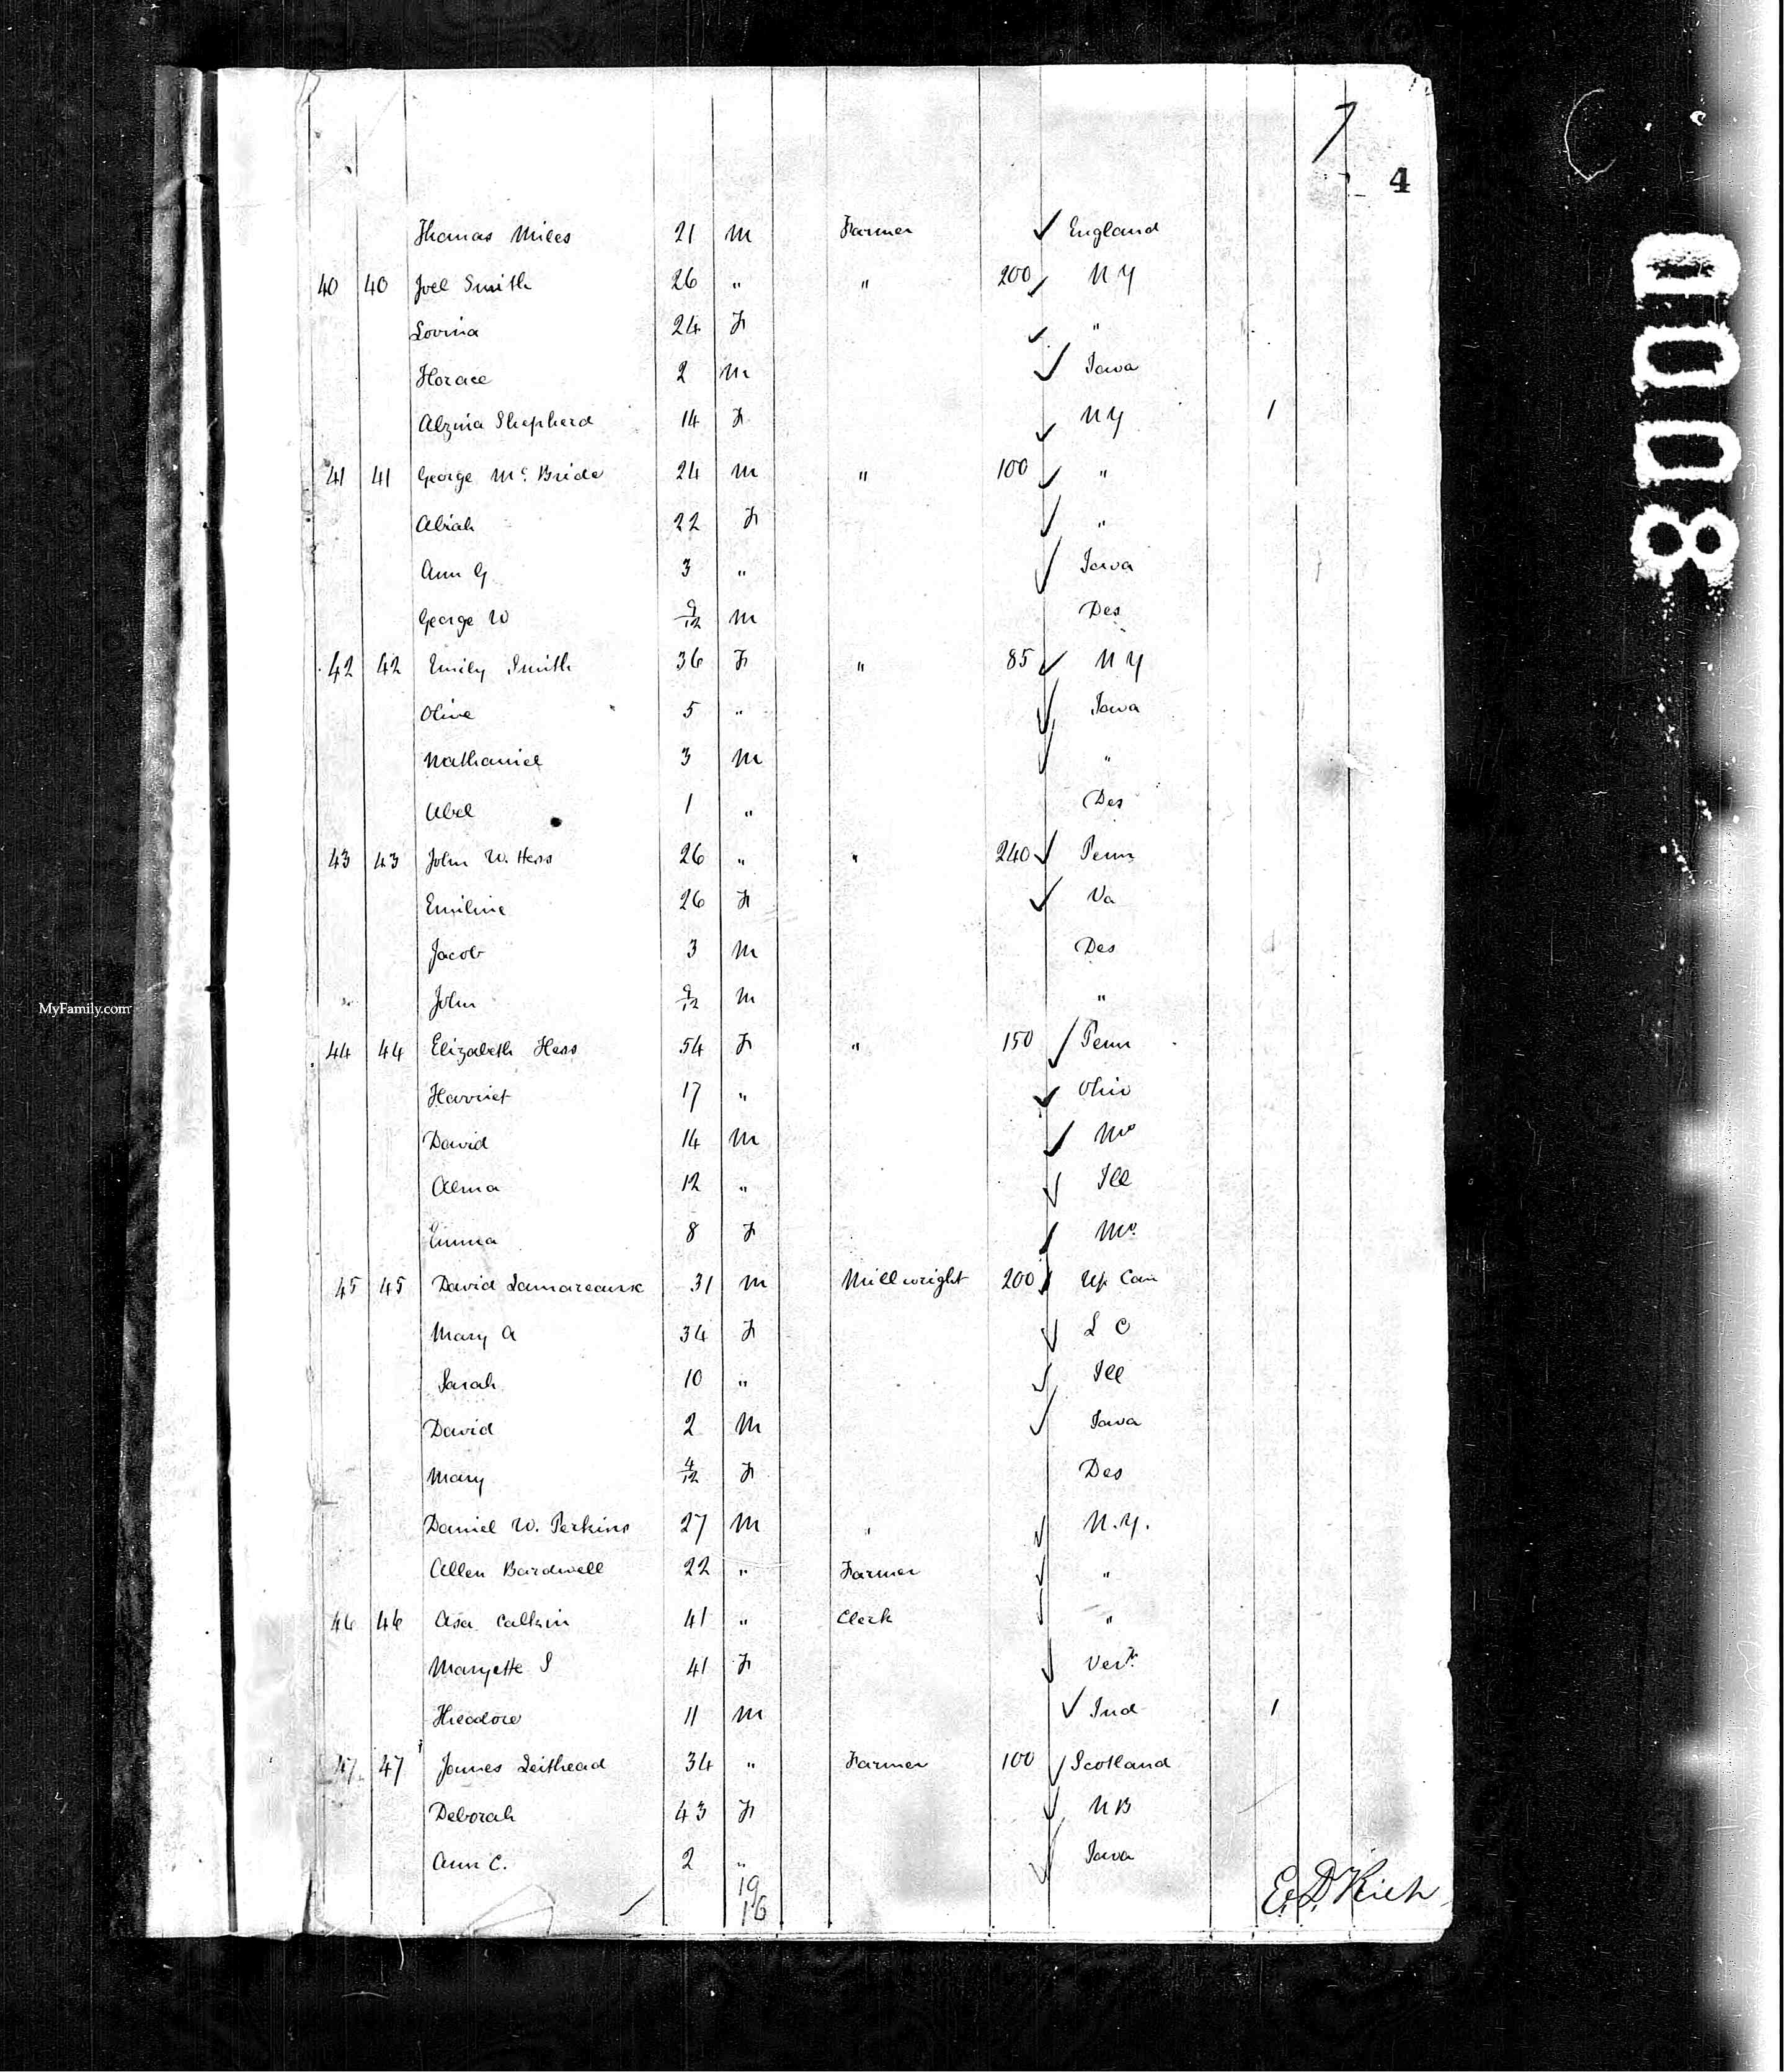 7
4
Thomas Miles 21 M Farmer ✓ England
40 40 Joel Smith 26 " " 200 ✓ N Y
Lovina 24 F ✓ "
Horace 2 M ✓ Iowa
Alzina Shepherd 14 F ✓ N Y 1
41 41 George Mc Bride 24 M " 100 ✓ "
Abiah 22 F ✓ "
Ann G 3 " ✓ Iowa
George W 9/12 M Des
42 42 Emily Smith 36 F " 85 ✓ N Y
Olive 5 " ✓ Iowa
Nathaniel 3 M ✓ "
Abel 1 " Des
43 43 John W. Hess 26 " " 240 ✓ Penn
Emiline 26 F ✓ Va
Jacob 3 M Des
John 9/12 M "
44 44 Elizabeth Hess 54 F " 150 ✓ Penn
Harriet 17 " ✓ Ohio
David 14 M ✓ Mo
Alma 12 " ✓ Ill
Emma 8 F ✓ Mo
45 45 David 31 M Millwright 200 ✓ Up Can
Mary A 34 F ✓ L C
Sarah 10 " ✓ Ill
David 2 M ✓ Iowa
Mary 4/12 F Des
Daniel W. Perkins 27 M " ✓ N.Y.
Allen Bardwell 22 " Farmer ✓ "
46 46 Asa Calkin 41 " Clerk ✓ "
Maryette S 41 F ✓ Vert
Theodore 11 M ✓ Ind 1
47 47 James Leithead 34 " Farmer 100 ✓ Scotland
Deborah 43 F ✓ N B
Ann C. 2 " ✓ Iowa
19
16
E. D. Rich
0008
MyFamily.com